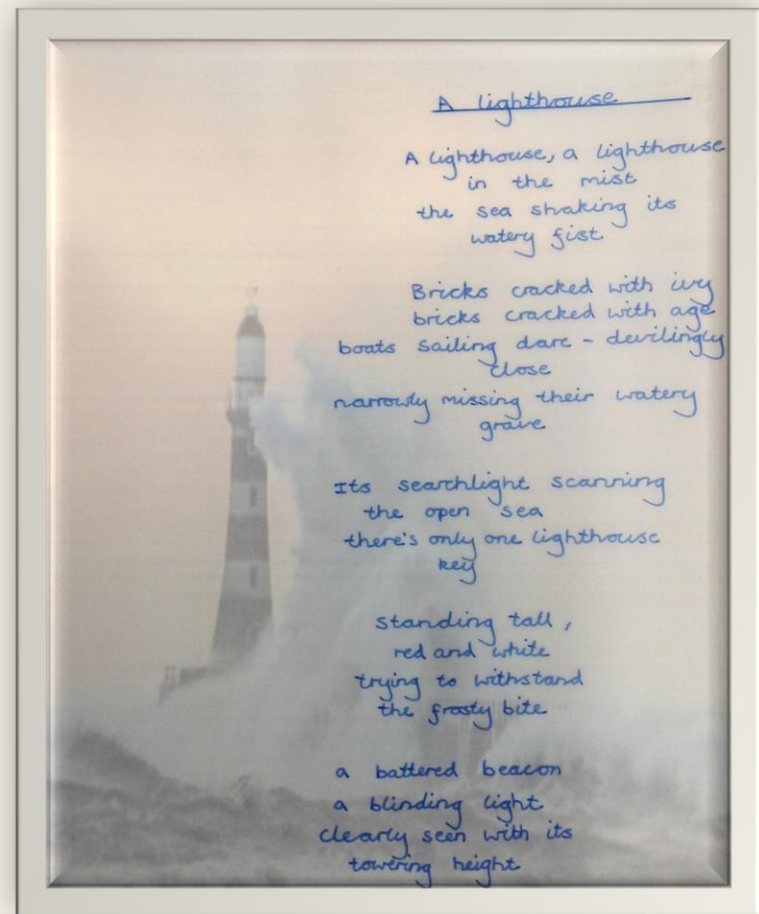 A lighthouse
A lighthouse, a lighthouse
in the mist
the sea shaking its
watery fist
Bricks cracked with ivy
bricks cracked with age
boats sailing dare - devilingly
close
narrowly missing their watery
grave
Its searchlight scanning
the open sea
there's only one lighthouse
key
standing tall,
red and white
trying to withstand
the frosty bite
a battered beacon
a blinding light
clearly seen with its
towering height